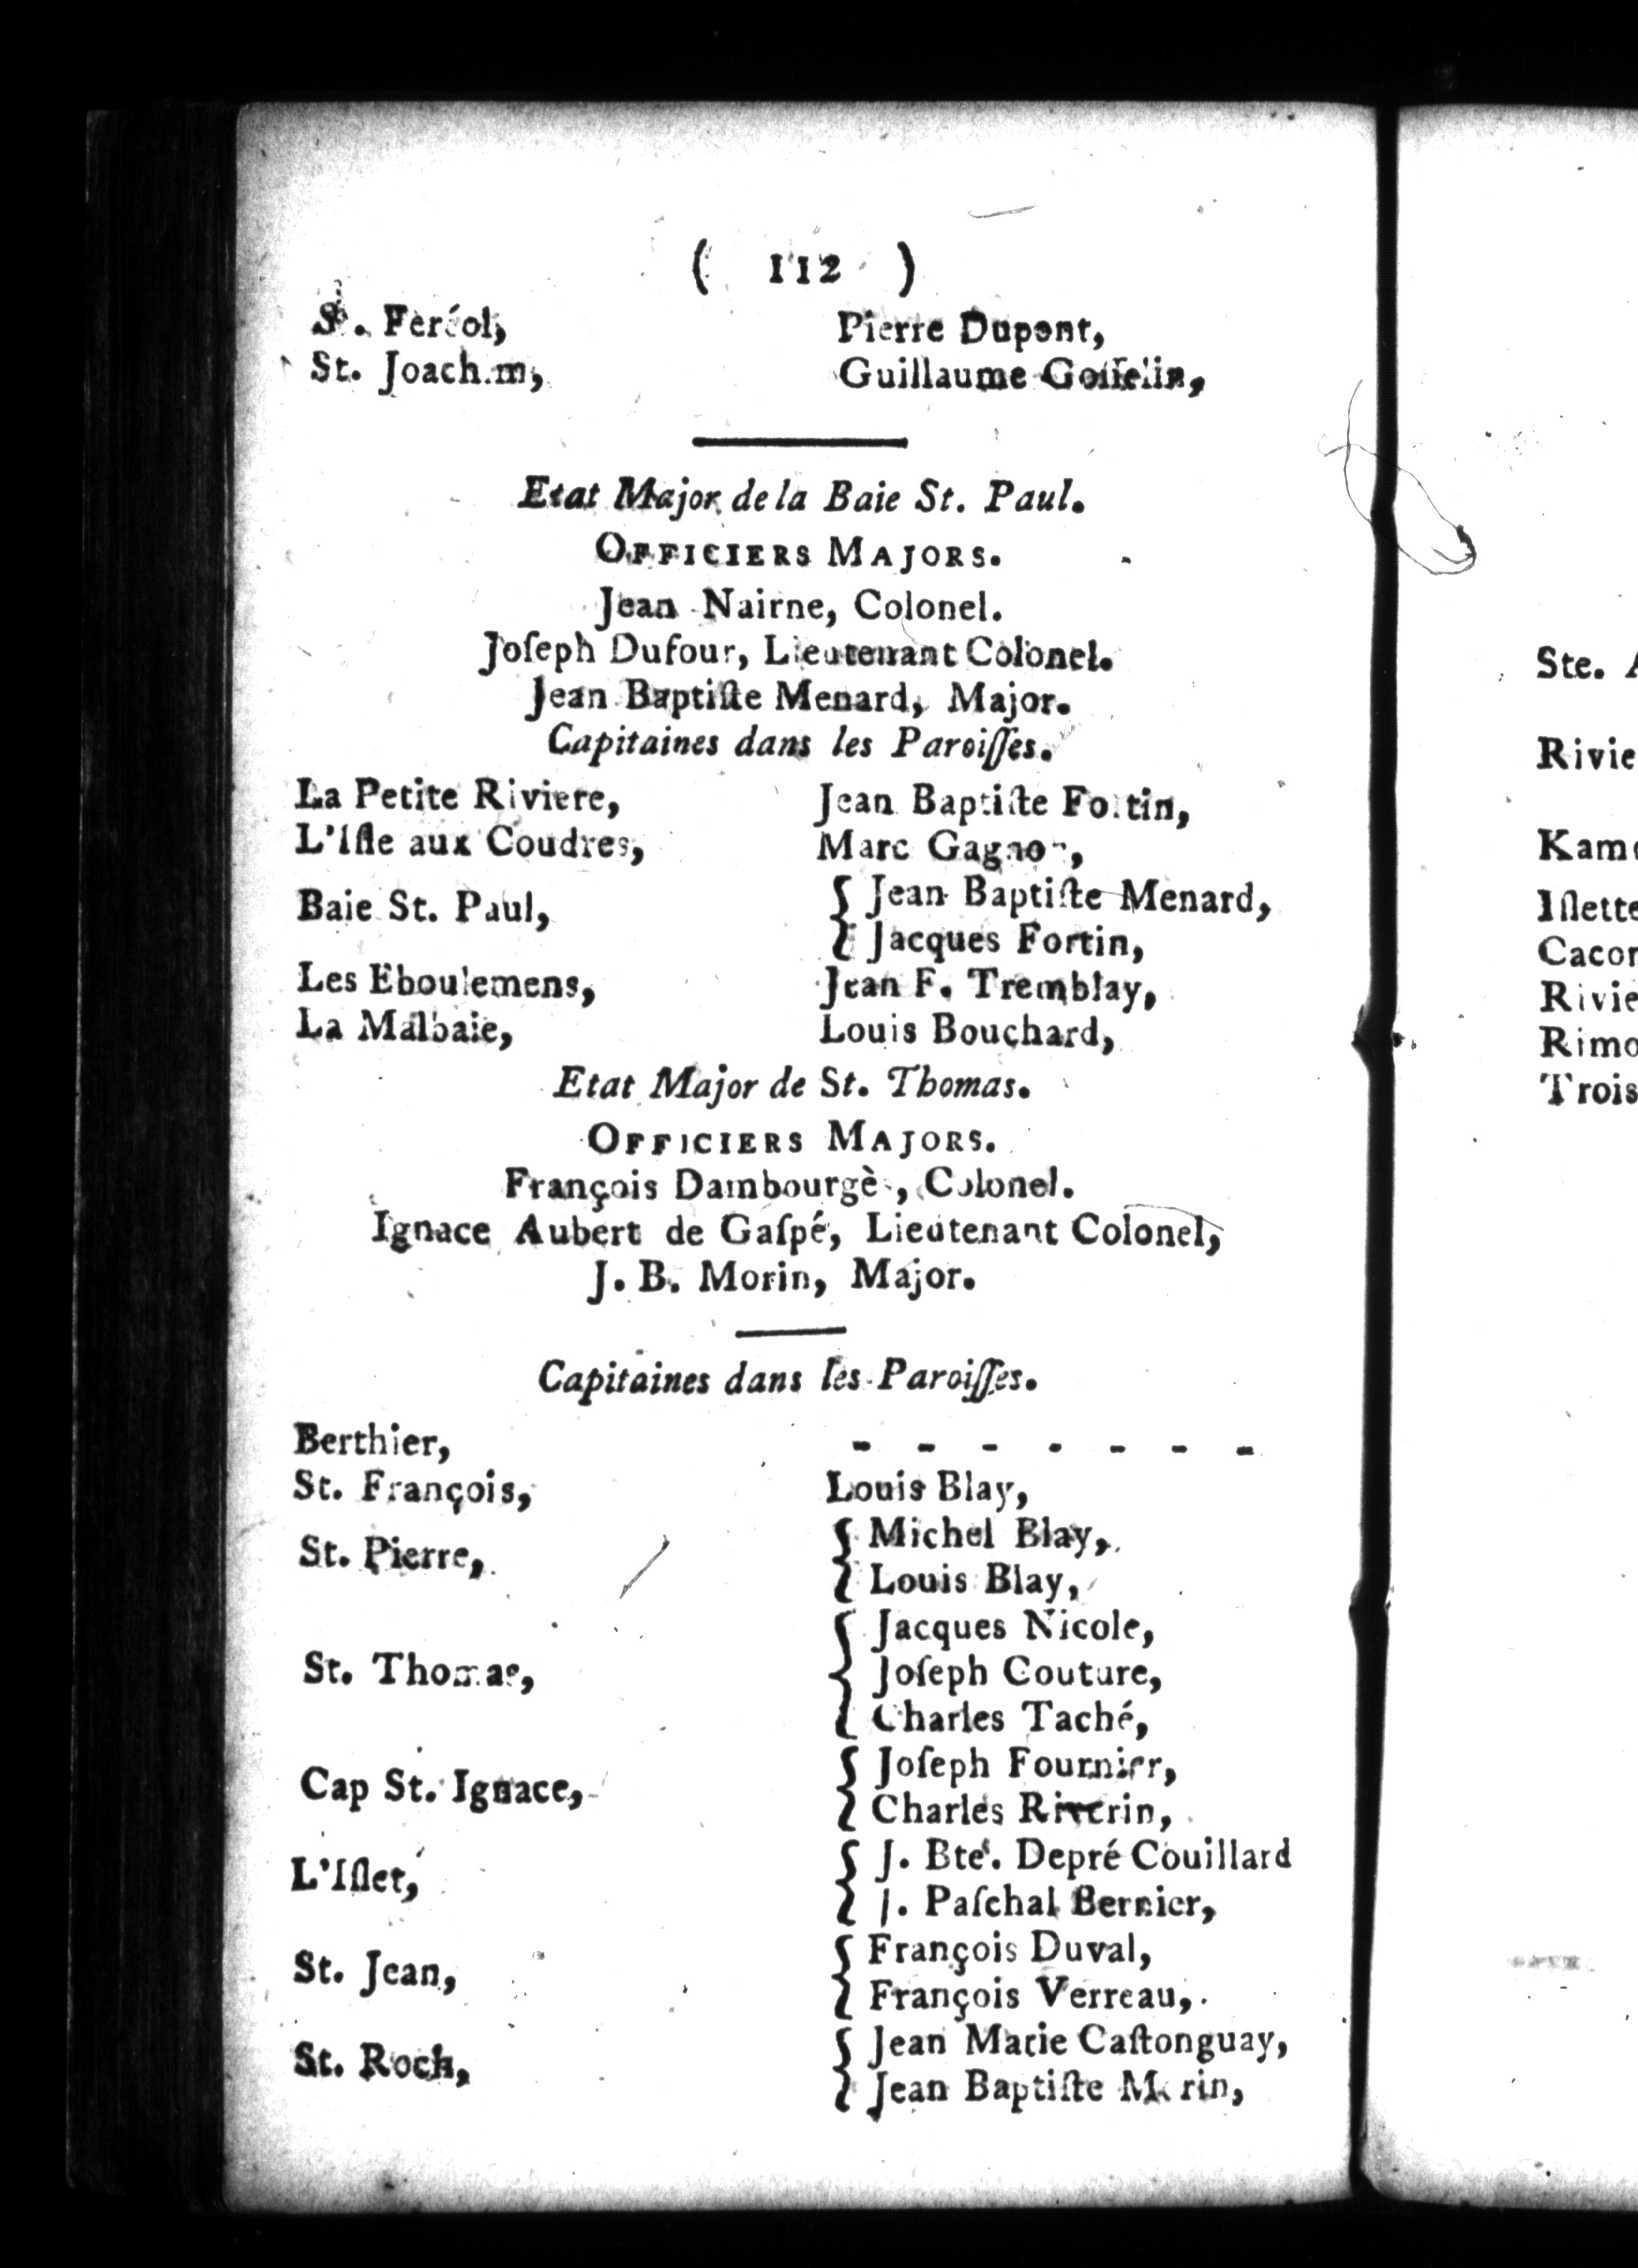 ( 112 )
St. Feréol, Pierre Dupont,
St. Joachim, Guillaume Goſſelin,
Etat Major de la Baie St. Paul.
OFFICIERS MAJORS.
Jean Nairne, Colonel.
Joſeph Dufour, Lieutenant Colonel.
Jean Baptiſte Menard, Major.
Capitaines dans les Paroiſſes.
La Petite Riviere, Jean Baptiſte Fortin,
L'Iſle aux Coudres, Marc Gagnon,
Baie St. Paul, { Jean Baptiſte Menard,
{ Jacques Fortin,
Les Eboulemens, Jean F. Tremblay,
La Malbaie, Louis Bouchard,
Etat Major de St. Thomas.
OFFICIERS MAJORS.
François Dambourgè, Colonel.
Ignace Aubert de Gaſpé, Lieutenant Colonel,
J. B. Morin, Major.
Capitaines dans les Paroiſſes.
Berthier, - - - - - - -
St. François, Louis Blay,
St. Pierre, { Michel Blay,
{ Louis Blay,
St. Thomas, { Jacques Nicole,
{ Joſeph Couture,
{ Charles Taché,
Cap St. Ignace, { Joſeph Fournier,
{ Charles Riverin,
L'Iſlet, { J. Bte. Depré Couillard
{ J. Paſchal Bernier,
St. Jean, { François Duval,
{ François Verreau,
St. Roch, { Jean Marie Caſtonguay,
{ Jean Baptiſte Morin,
Ste.
Rivie
Kam
Iſlette
Cacon
Rivie
Rimo
Trois